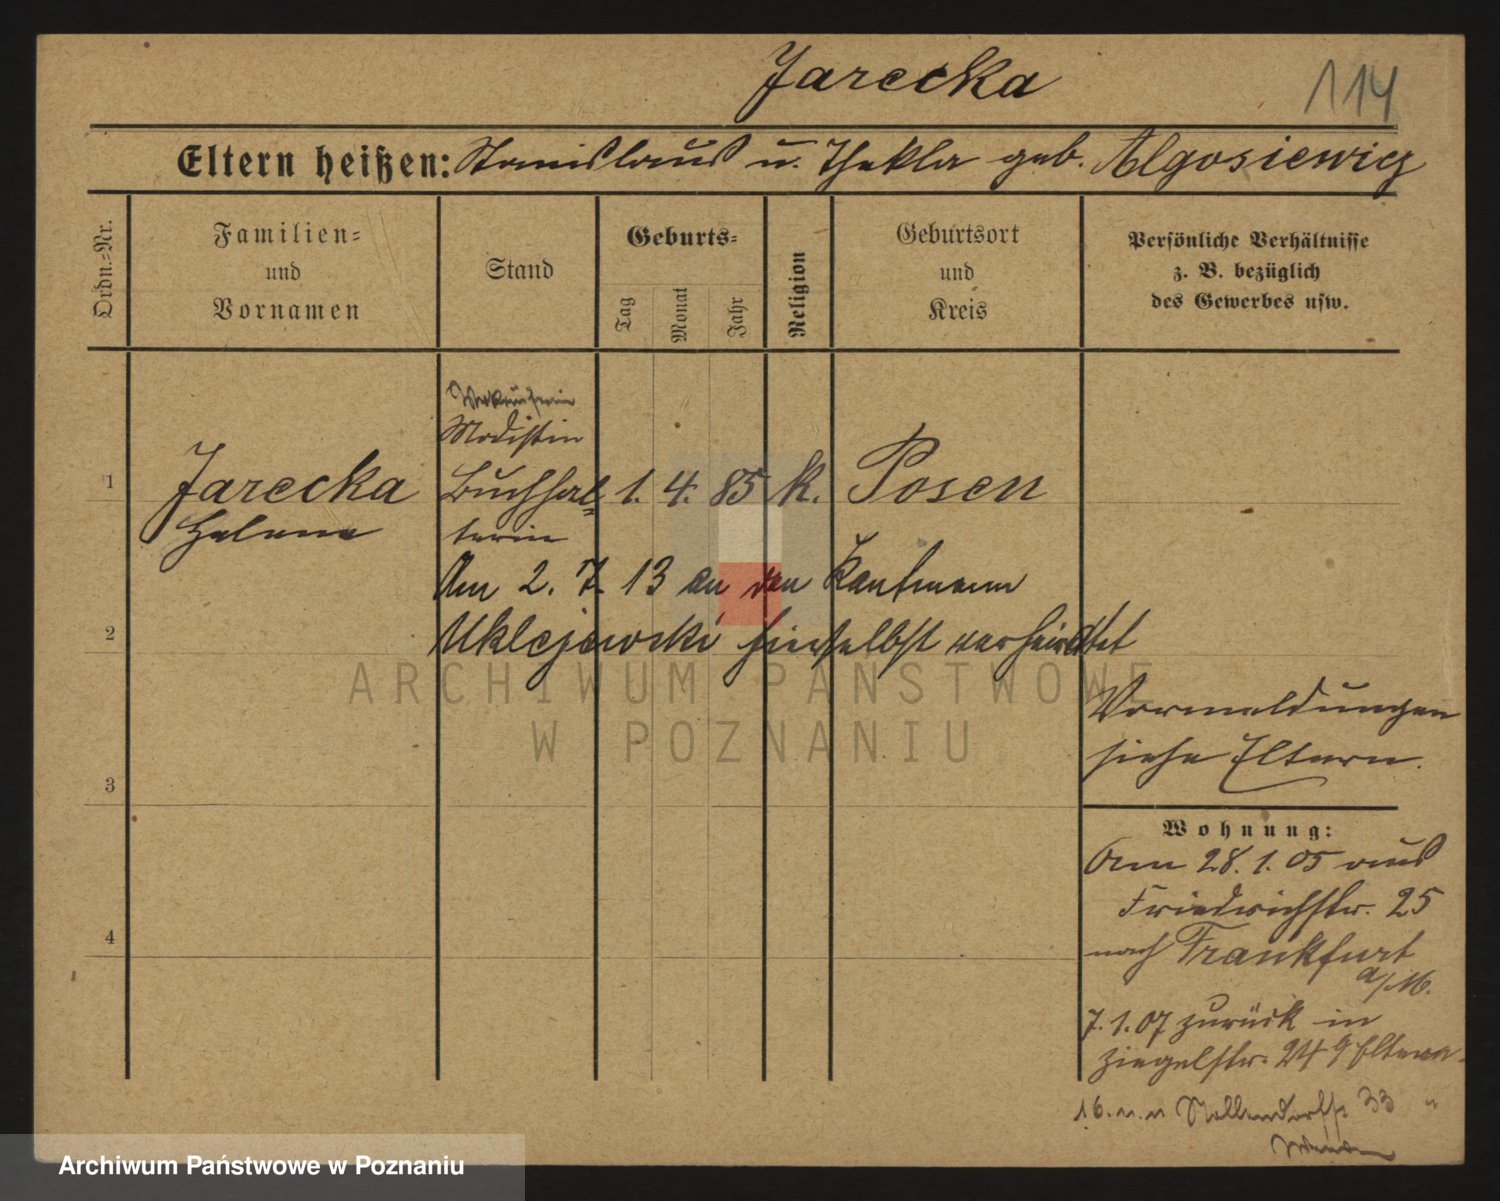 Jarecka
114
Eltern heißen: Stanislaus u. Thekla geb. Algosiewicz
Ordn.-Nr.
Familien=
und
Vornamen
Stand
Geburts=
Tag
Monat
Jahr
Religion
Geburtsort
und
Kreis
Persönliche Verhältnisse
z. B. bezüglich
des Gewerbes usw.
Verkäuferin
Modistin
1 Jarecka Buchhal= 1. 4. 85 k. Posen
Helene terin
Am 2. 7. 13 an den Kaufmann
2
Uklejewski hierselbst verheiratet
ARCHIWUM PAŃSTWOWE
W POZNANIU
Vormeldungen
siehe Eltern.
3
Wohnung:
Am 28. 1. 05 aus
Friedrichstr. 25
4
nach Frankfurt
a/M.
7. 1. 07 zurück in
Ziegelstr. 24 Eltern
16. Nollendorfstr 33 "
Archiwum Państwowe w Poznaniu